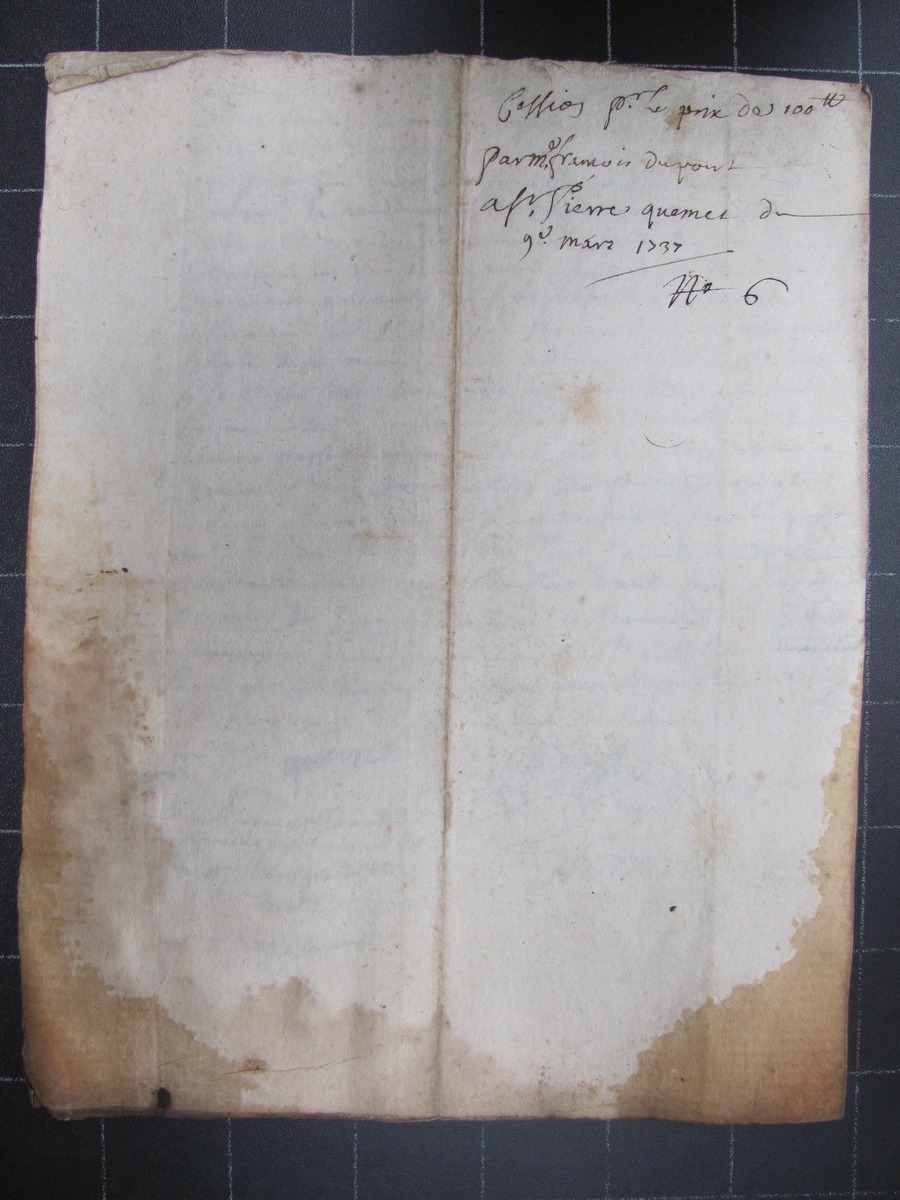 Cession pr. Le prix de 100 tt
par me. francois dupont
a sr. Pierre quemet du
9e. mars 1737
No 6